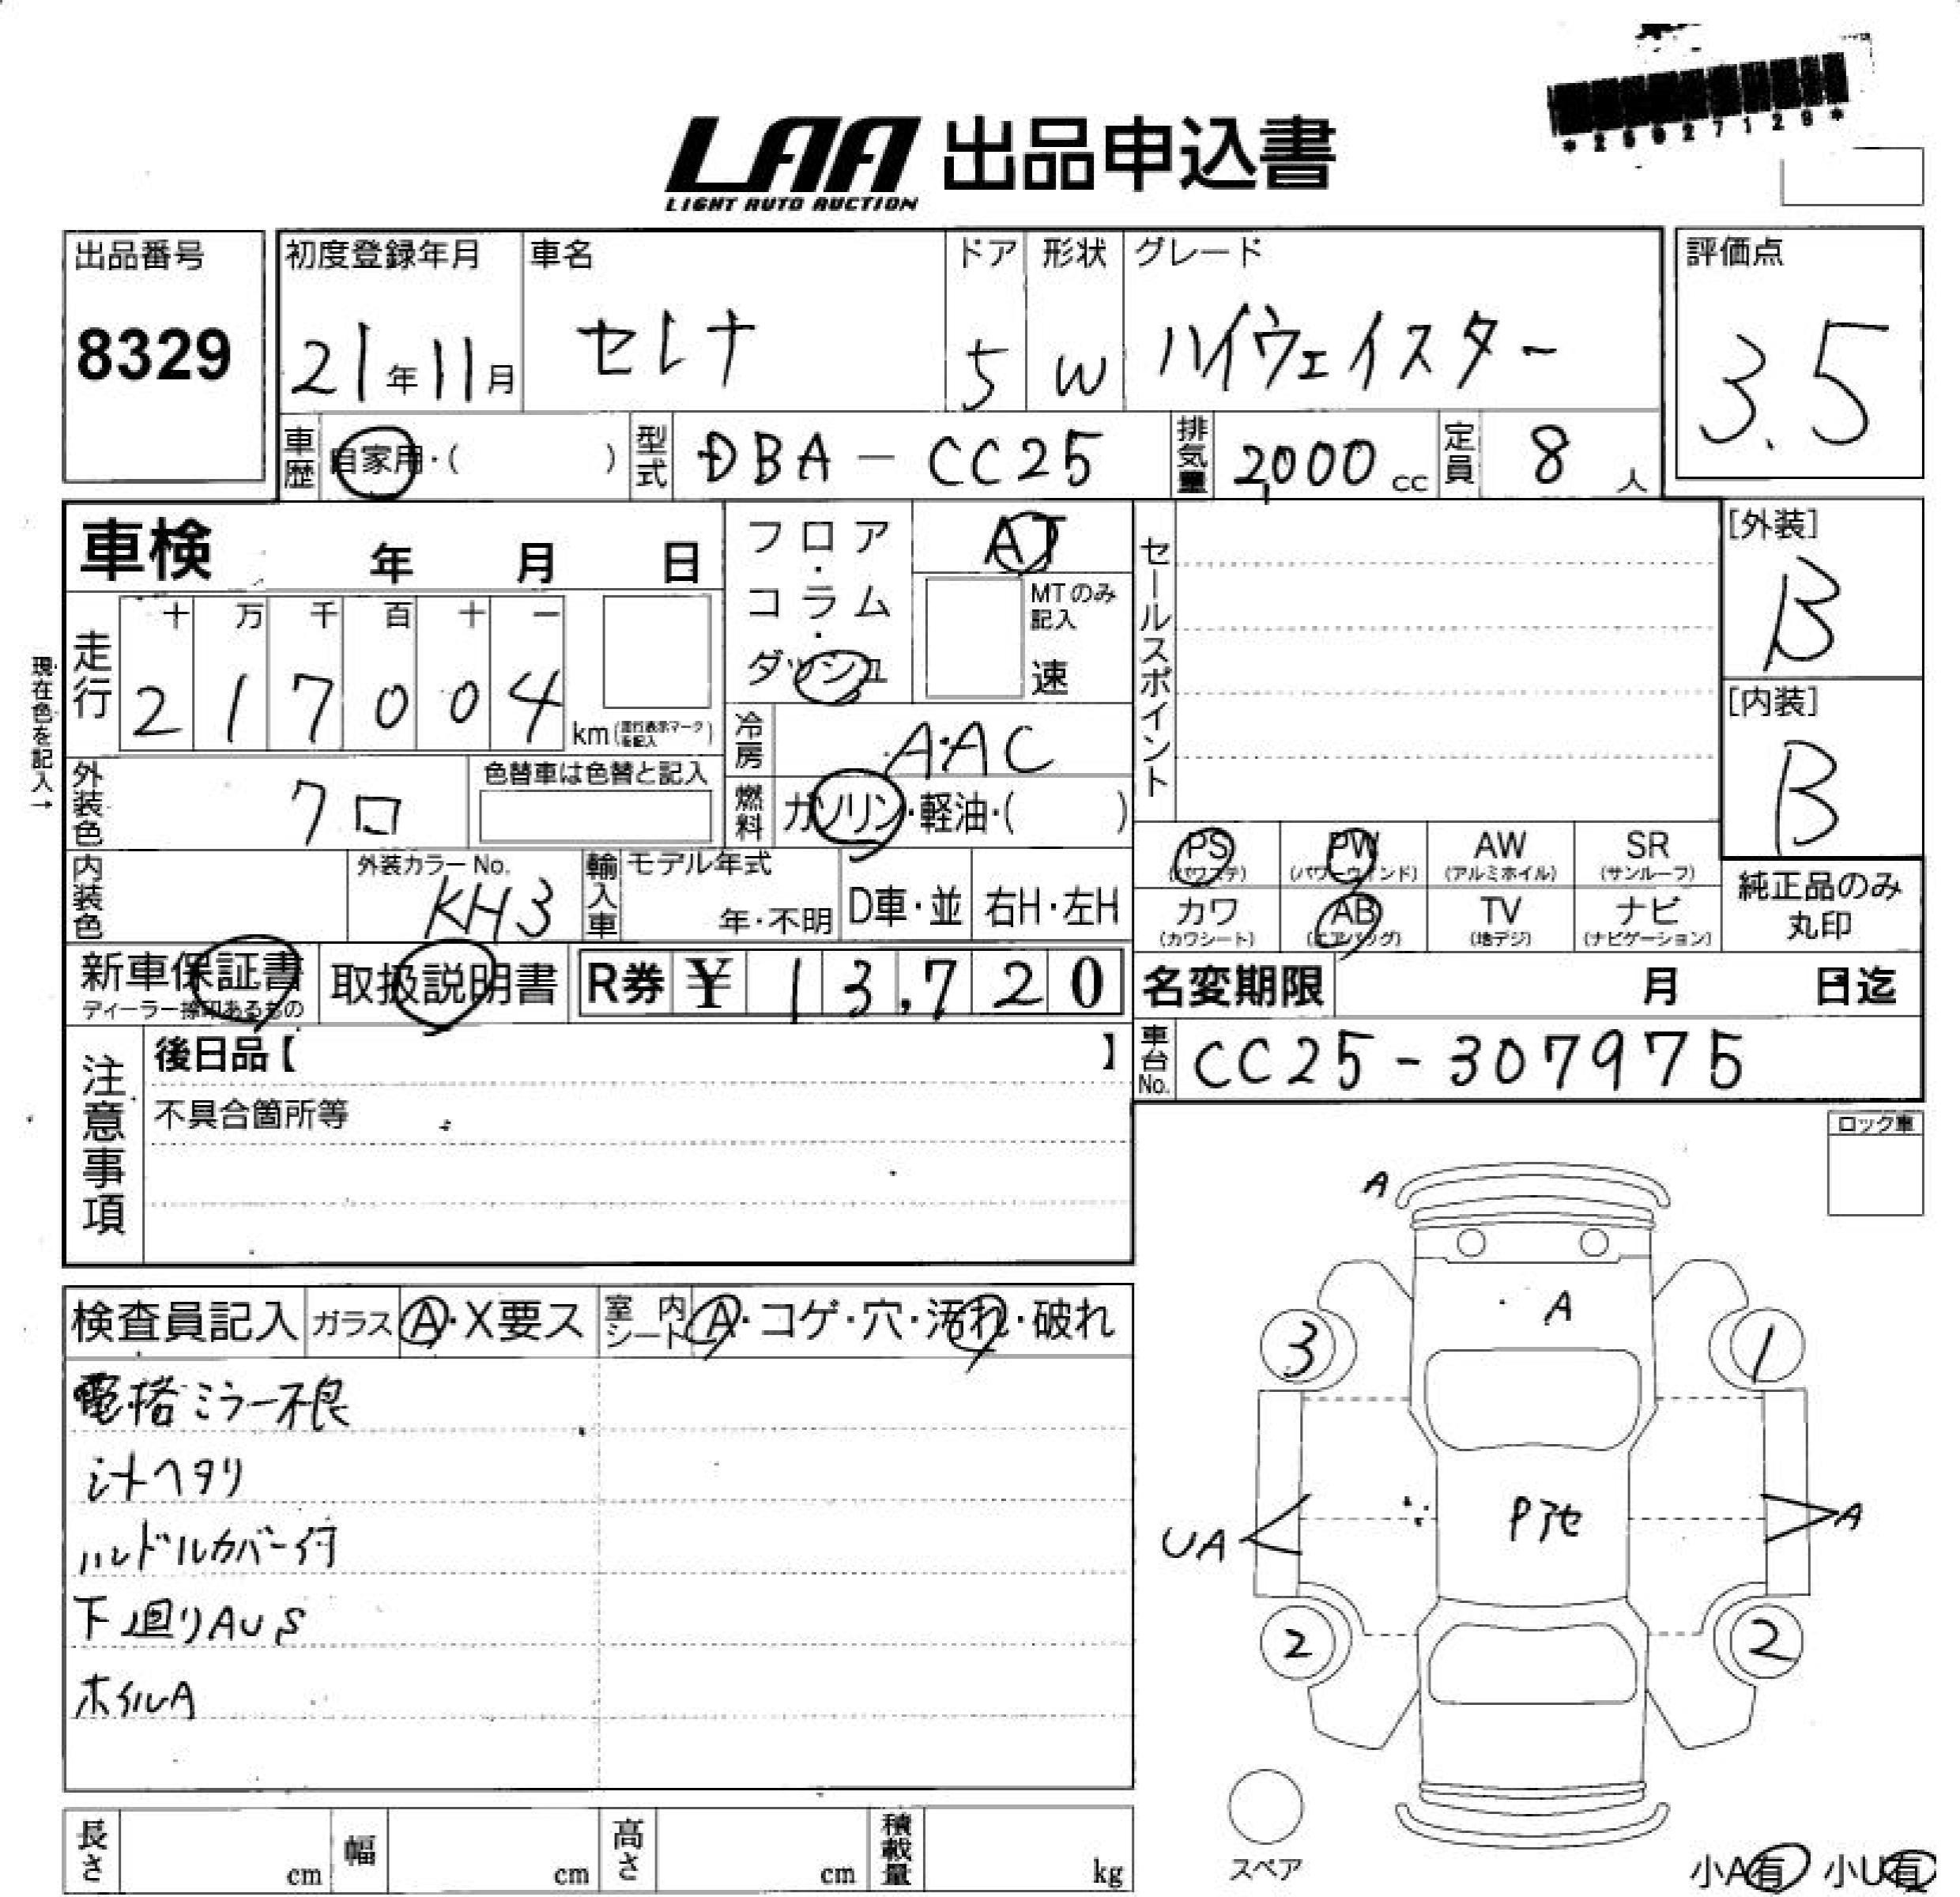 *26927128*
LAA 出品申込書
LIGHT AUTO AUCTION
出品番号 初度登録年月 車名 ドア 形状 グレード 評価点
8329 21年11月 セレナ 5 W ハイウェイスター 3.5
車歴 自家用・( ) 型式 DBA-CC25 排気量 2,000cc 定員 8人
車検 年 月 日 フロア・コラム・ダッシュ AT MTのみ記入 速 セールスポイント [外装] B
現在色を記入→
走行 十 万 千 百 十 一
217004 km(走行表示マークを記入) [内装] B
冷房 A・AC
外装色 クロ 色替車は色替と記入 燃料 ガソリン・軽油・( )
PS(パワステ) PW(パワーウインド) AW(アルミホイル) SR(サンルーフ)
内装色 外装カラーNo. KH3 輸入車 モデル年式 年・不明 D車・並 右H・左H
カワ(カワシート) AB(エアバッグ) TV(地デジ) ナビ(ナビゲーション) 純正品のみ丸印
新車保証書 ディーラー捺印あるもの 取扱説明書 R券 ¥13,720 名変期限 月 日迄
車台No. CC25-307975
注意事項 後日品【 】
不具合箇所等
ロック車
検査員記入 ガラス A・X要ス 室内シート A・コゲ・穴・汚れ・破れ
電格ミラー不良
シートヘタリ
ハンドルカバー付
下廻りAUS
ホイルA
A
A
3 1
UA A
2 2
スペア
小A有 小U有
長さ cm 幅 cm 高さ cm 積載量 kg